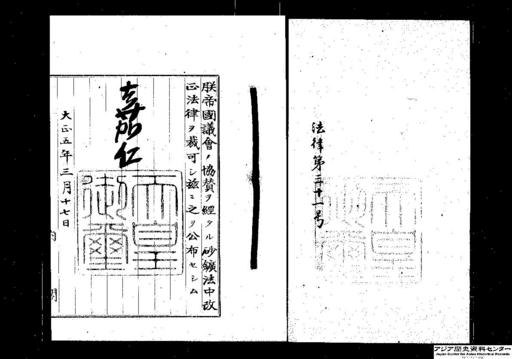 法律第三十一号
朕帝國議會ノ協賛ヲ經タル砂鑛法中改
正法律ヲ裁可シ茲ニ之ヲ公布セシム
嘉仁
天皇
御璽
大正五年三月十七日
内
閣
アジア歴史資料センター
Japan Center for Asian Historical Records